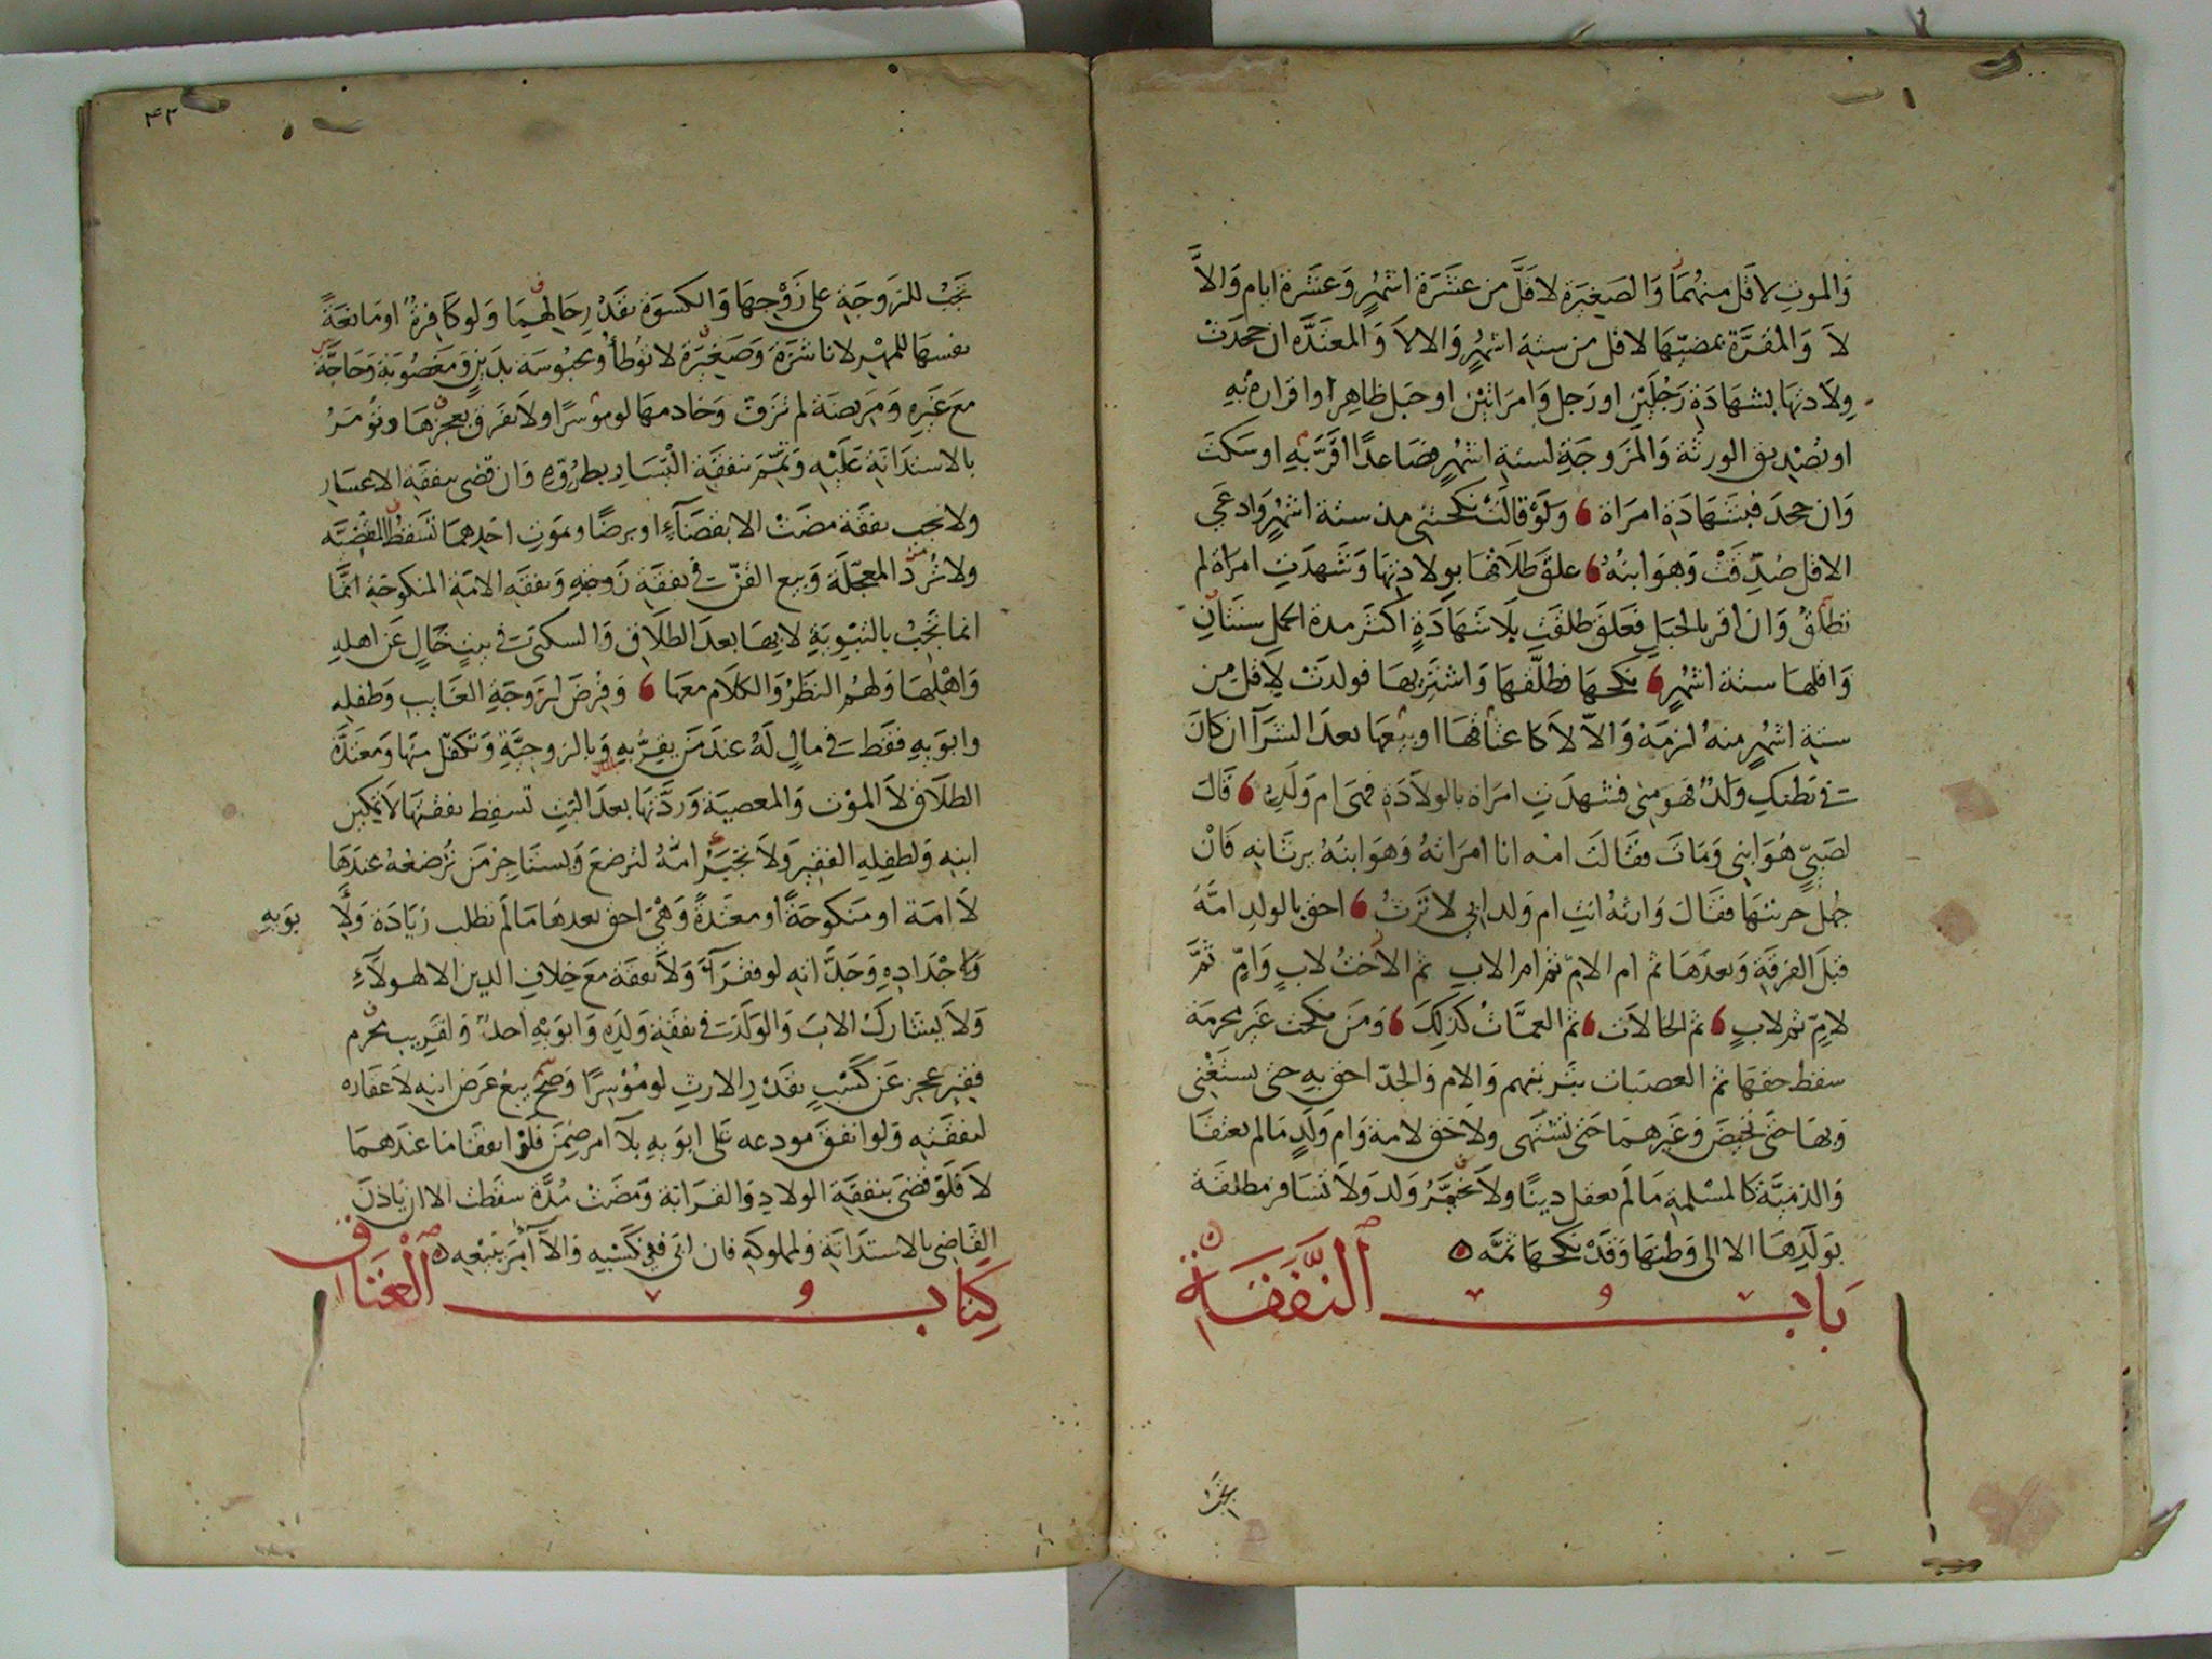 وَالموتِ لاقل منهُمَا وَالصَغِيَرة لاقلَّ من عشَرَة اشهُرٍ وَعَشَرة ايام وَالاَّ
لاَ وَالمقرَّة بمضيّهَا لاقل من ستة اشهُرٍ وَالا لاَ وَالمعتَدَّه ان جحدَتْ
وِلاَدتهَا بشهَادَةِ رَجُلَيْنِ او رَجل وَامرَاتيْن او حبَل ظاهِر او اقراره بِهِ
او تصْديق الورثة وَالمَزوجَةِ لستة اشهُرٍ فصَاعدًا اقَرَّ بِهِ او سَكتَ
وَان جحدَ فبشَهَادَةِ امرَاة وَلَوْ قالَتْ نكحتني مذ ستة اشهُرٍ وَادعَي
الاقل صُدِّقَتْ وَهوَ ابنهُ علق طَلاَقهَا بولادتهَا وَشَهدَتِ امرَاة لم
تطلقْ وَان اقر بالحبَل فعَلق طلقت بِلاَ شَهَادَةٍ اكثَر مدة الحمل سنَتانِ
وَاقلهَا ستة اشهُرٍ نكحهَا فطلّقهَا وَاشتَريهَا فولدَتْ لاِقل من
ستة اشهُرٍ منهُ لزمَهُ وَالاّ لاَ كاعتاقهَا او بيْعهَا بعدَ الشرَآ ان كانَ
في بَطنكِ وَلَدٌ فهوَ مني فشهدَتِ امرَاة بالولاَدَةِ فهىَ ام وَلَدِه قَالَ
لصَبيٍّ هُوَ ابني وَمَاتَ فقَالتْ امه انا امرَاتهُ وَهوَ ابنهُ يرثانِه فَانْ
جُهل حريتهَا فقالَ وَارثهُ انتِ ام وَلد ابي لا تَرثُ احق بالولد امّهُ
قبلَ الفرقَةِ وَبعدَهَا ثم ام الامّ ثم ام الابِ ثم الاختُ لابٍ وَامٍّ ثمَّ
لامٍّ ثم لابٍ ثم الخالاَت ثم العمَّاتُ كذلِكَ وَمَن نكحت غيْر محرمَهُ
سقط حقهَا ثم العصبَات بترتيبهم وَالام وَالجدّ احق بِهِ حتى يستغْني
وَبهَا حتى تحيضَ وَغيْرهمَا حتى تشتهى ولاَ حق لامة وَام وَلَدٍ مَالم يعتقا
وَالذميَّة كالمسْلِمةِ مَالمْ يعقل دينًا ولاَ يخيَّرُ وَلد وَلاَ تسَافر مطلقَة
بوَلَدِهَا الا الى وَطنهَا وَقَدْ نكحهَا ثمَّه
بَاب النَّفَقَةِ
تجَبْ
٤٣
تجَبْ للزوجَةِ على زَوْجهَا وَالكسوَة بقَدْرِ حَالهمَا وَلو كَافِرة او مَانعَةً
نفسهَا للمهْرِ لا ناشزَة وَصَغيَرة لا تُوطأ ومحبُوسَة بدَيْنٍ وَمَغصُوبَة وَحَاجّة
معَ غَيْرِه وَمرِيضَة لم تزَفّ وَخادمهَا لو موْسرًا ولاَ يفَرق بعجْزِهَا وتُؤمَرُ
بالاستدَانَة عَلَيْهِ وَتمّم نفقَة اليَسَارِ بطُرُوّه وَان قضى بنفقَة الاعسَارِ
ولا تجب نفقَة مضَتْ الا بقضَآءٍ او برضًا وبمَوتِ احَدِهمَا تَسقط المقْضيَّه
ولا تُرَدُّ المعجّلَة وَبيع القنّ في نفقَةِ زَوجَتِهِ وَنفقَة الامَةِ المنكوحَةِ انمَّا
انما تَجَبُ بالتبْوِيَةِ لا بِهَا بعدَ الطلاَق وَالسكنى في بيْتٍ خَالٍ عَن اهلِهِ
وَاهْلِهَا وَلهمُ النظَرُ وَالكلاَم معهَا وَفرضَ لزوجَةِ الغَايبِ وَطفلِه
وابوَيهِ فقط في مالٍ لَهُ عندَ مَن يقِرّ بِهِ وَبالزوجيَّةِ وَتكفّل منهَا وَمعتَدَّة
بالمال
الطلاَق لاَ الموْت وَالمعصيَة وَرِدَّتهَا بعدَ البَتِ تسقِط نفقتهَا لاَ تمكين
ابنهِ وَلطفلِهِ الفقير وَلاَ تجبَرْ امّهُ لترضعَ وَيستاجِر مَن تُرضعُه عندَهَا
لاَ امَة او منكوحَةً او معتدَةً وَهْىَ احق بعدهَا مَالمْ تطلب زيَادَة وَلاِ
بوَيهِ
وَاجْدَادِهِ وَجَدَّاتهِ لو فقَرآءَ وَلاَ نفقَة معَ خِلافِ الدين الا لهولاَءِ
وَلاَ يشَاركُ الابَ وَالوَلَدَ في نفقَة وَلَدِه وَابوَيْهِ احدٌ وَلقَرِيبٍ محْرم
فقيْر عجز عَن كَسْبٍ بقَدْرِ الارثِ لو مُوْسِرًا وَصحَّ بيعُ عَرض ابنهِ لاَ عقَارِه
لنفقَتِهِ وَلو انفقَ مودعه عَلى ابوَيهِ بلاَ امر ضِمنَ فَلَوْ انفقَا مَا عندَهمَا
لاَ فَلَوْ قضىَ بنفقَة الولادِ وَالقرَابَة وَمضَتْ مُدَّة سقَطت الا ان ياذنَ
القَاضي بالاستدَانَة وَلمملوكِهِ فان ابى ففِي كَسْبِهِ وَالاّ اُمِرَ ببَيْعِه
كِتَاب العتَاق